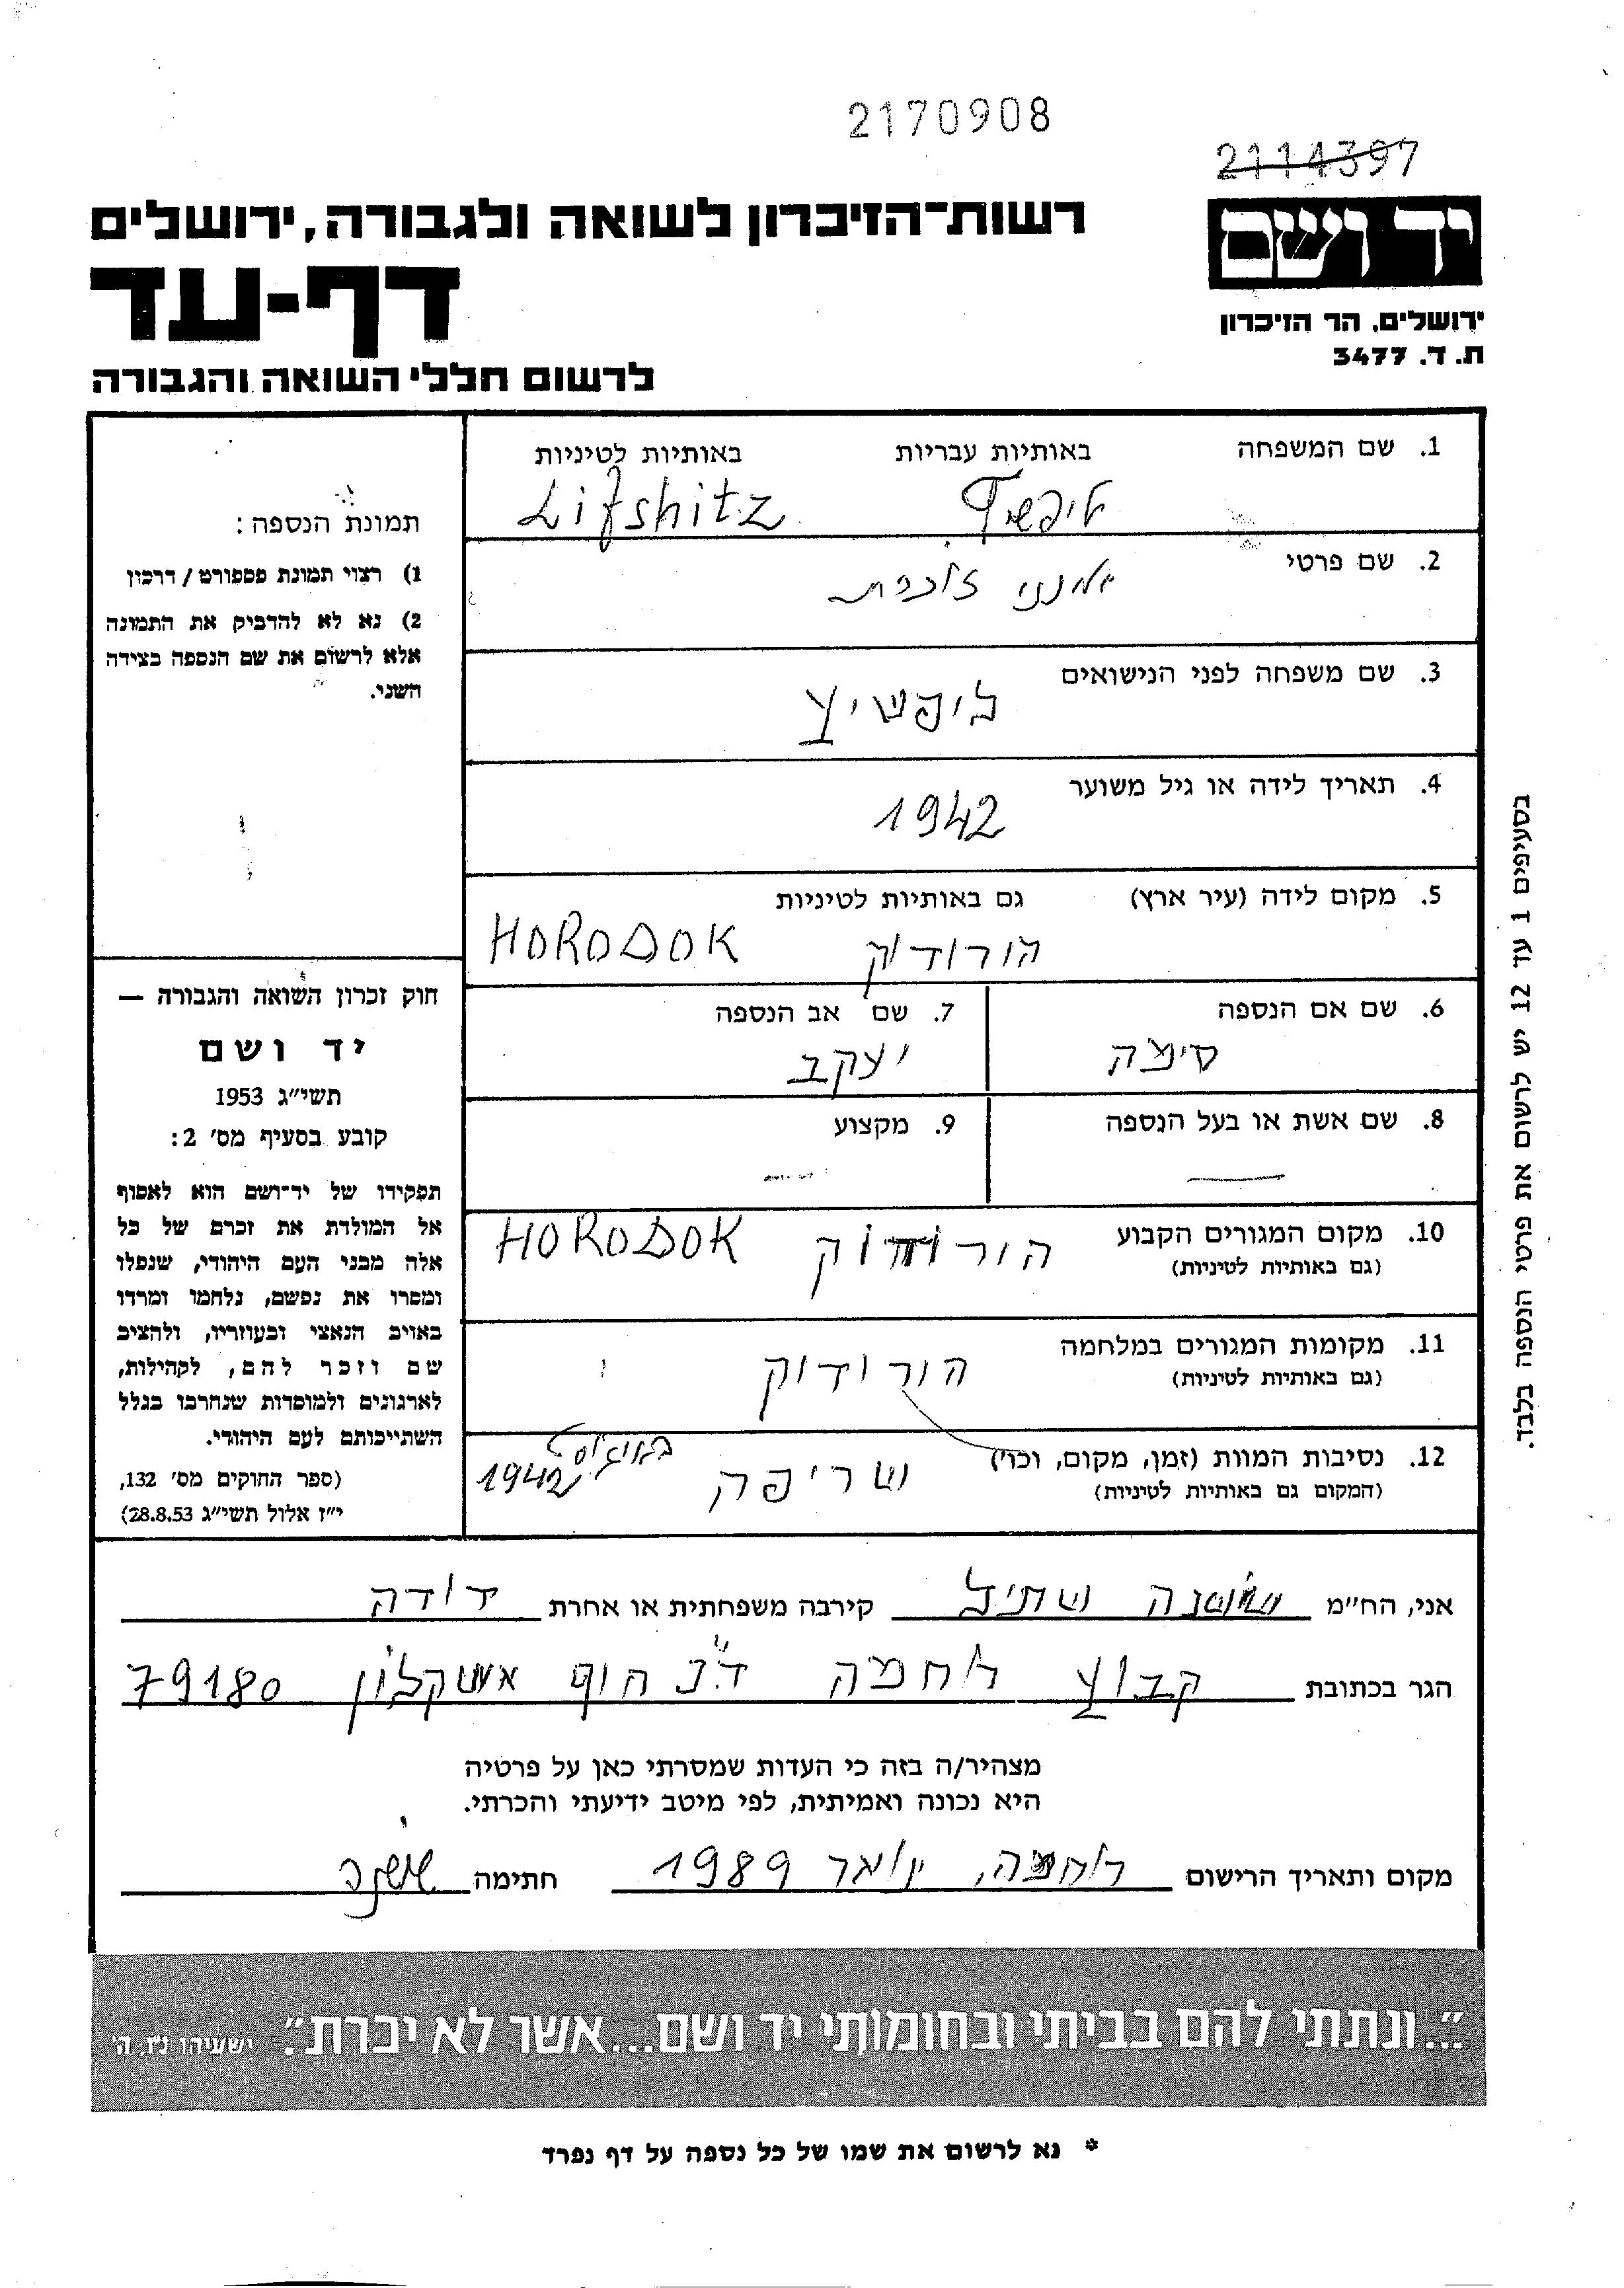 2170908
2114397
יד ושם
ירושלים, הר הזיכרון
ת. ד. 3477
רשות-הזיכרון לשואה ולגבורה, ירושלים
דף-עד
לרשום חללי השואה והגבורה
1. שם המשפחה באותיות עבריות באותיות לטיניות
ליפשיץ Lifshitz
2. שם פרטי
אינני זוכרת
3. שם משפחה לפני הנישואים
ליפשיץ
4. תאריך לידה או גיל משוער
1942
5. מקום לידה (עיר ארץ) גם באותיות לטיניות
הורודוק HORODOK
6. שם אם הנספה 7. שם אב הנספה
סימה יעקב
8. שם אשת או בעל הנספה 9. מקצוע
— —
10. מקום המגורים הקבוע
(גם באותיות לטיניות)
הורודוק HORODOK
11. מקומות המגורים במלחמה
(גם באותיות לטיניות)
הורודוק
12. נסיבות המוות (זמן, מקום, וכו')
(המקום גם באותיות לטיניות)
שריפה באוגוסט 1942
תמונת הנספה:
1) רצוי תמונת פספורט / דרכון
2) נא לא להדביק את התמונה
אלא לרשום את שם הנספה בצידה
השני.
חוק זכרון השואה והגבורה —
יד ושם
תשי״ג 1953
קובע בסעיף מס׳ 2:
תפקידו של יד-ושם הוא לאסוף
אל המולדת את זכרם של כל
אלה מבני העם היהודי, שנפלו
ומסרו את נפשם, נלחמו ומרדו
באויב הנאצי ובעוזריו, ולהציב
שם וזכר להם, לקהילות,
לארגונים ולמוסדות שנחרבו בגלל
השתייכותם לעם היהודי.
(ספר החוקים מס׳ 132,
י״ז אלול תשי״ג 28.8.53)
בסעיפים 1 עד 12 יש לרשום את פרטי הנספה בלבד.
אני, הח״מ שושנה שתיל קירבה משפחתית או אחרת דודה
הגר בכתובת קבוץ רוחמה ד.נ חוף אשקלון 79180
מצהיר/ה בזה כי העדות שמסרתי כאן על פרטיה
היא נכונה ואמיתית, לפי מיטב ידיעתי והכרתי.
מקום ותאריך הרישום רוחמה, ינואר 1989 חתימה
״...ונתתי להם בביתי ובחומותי יד ושם...אשר לא יכרת״. ישעיהו נ״ו, ה׳
* נא לרשום את שמו של כל נספה על דף נפרד